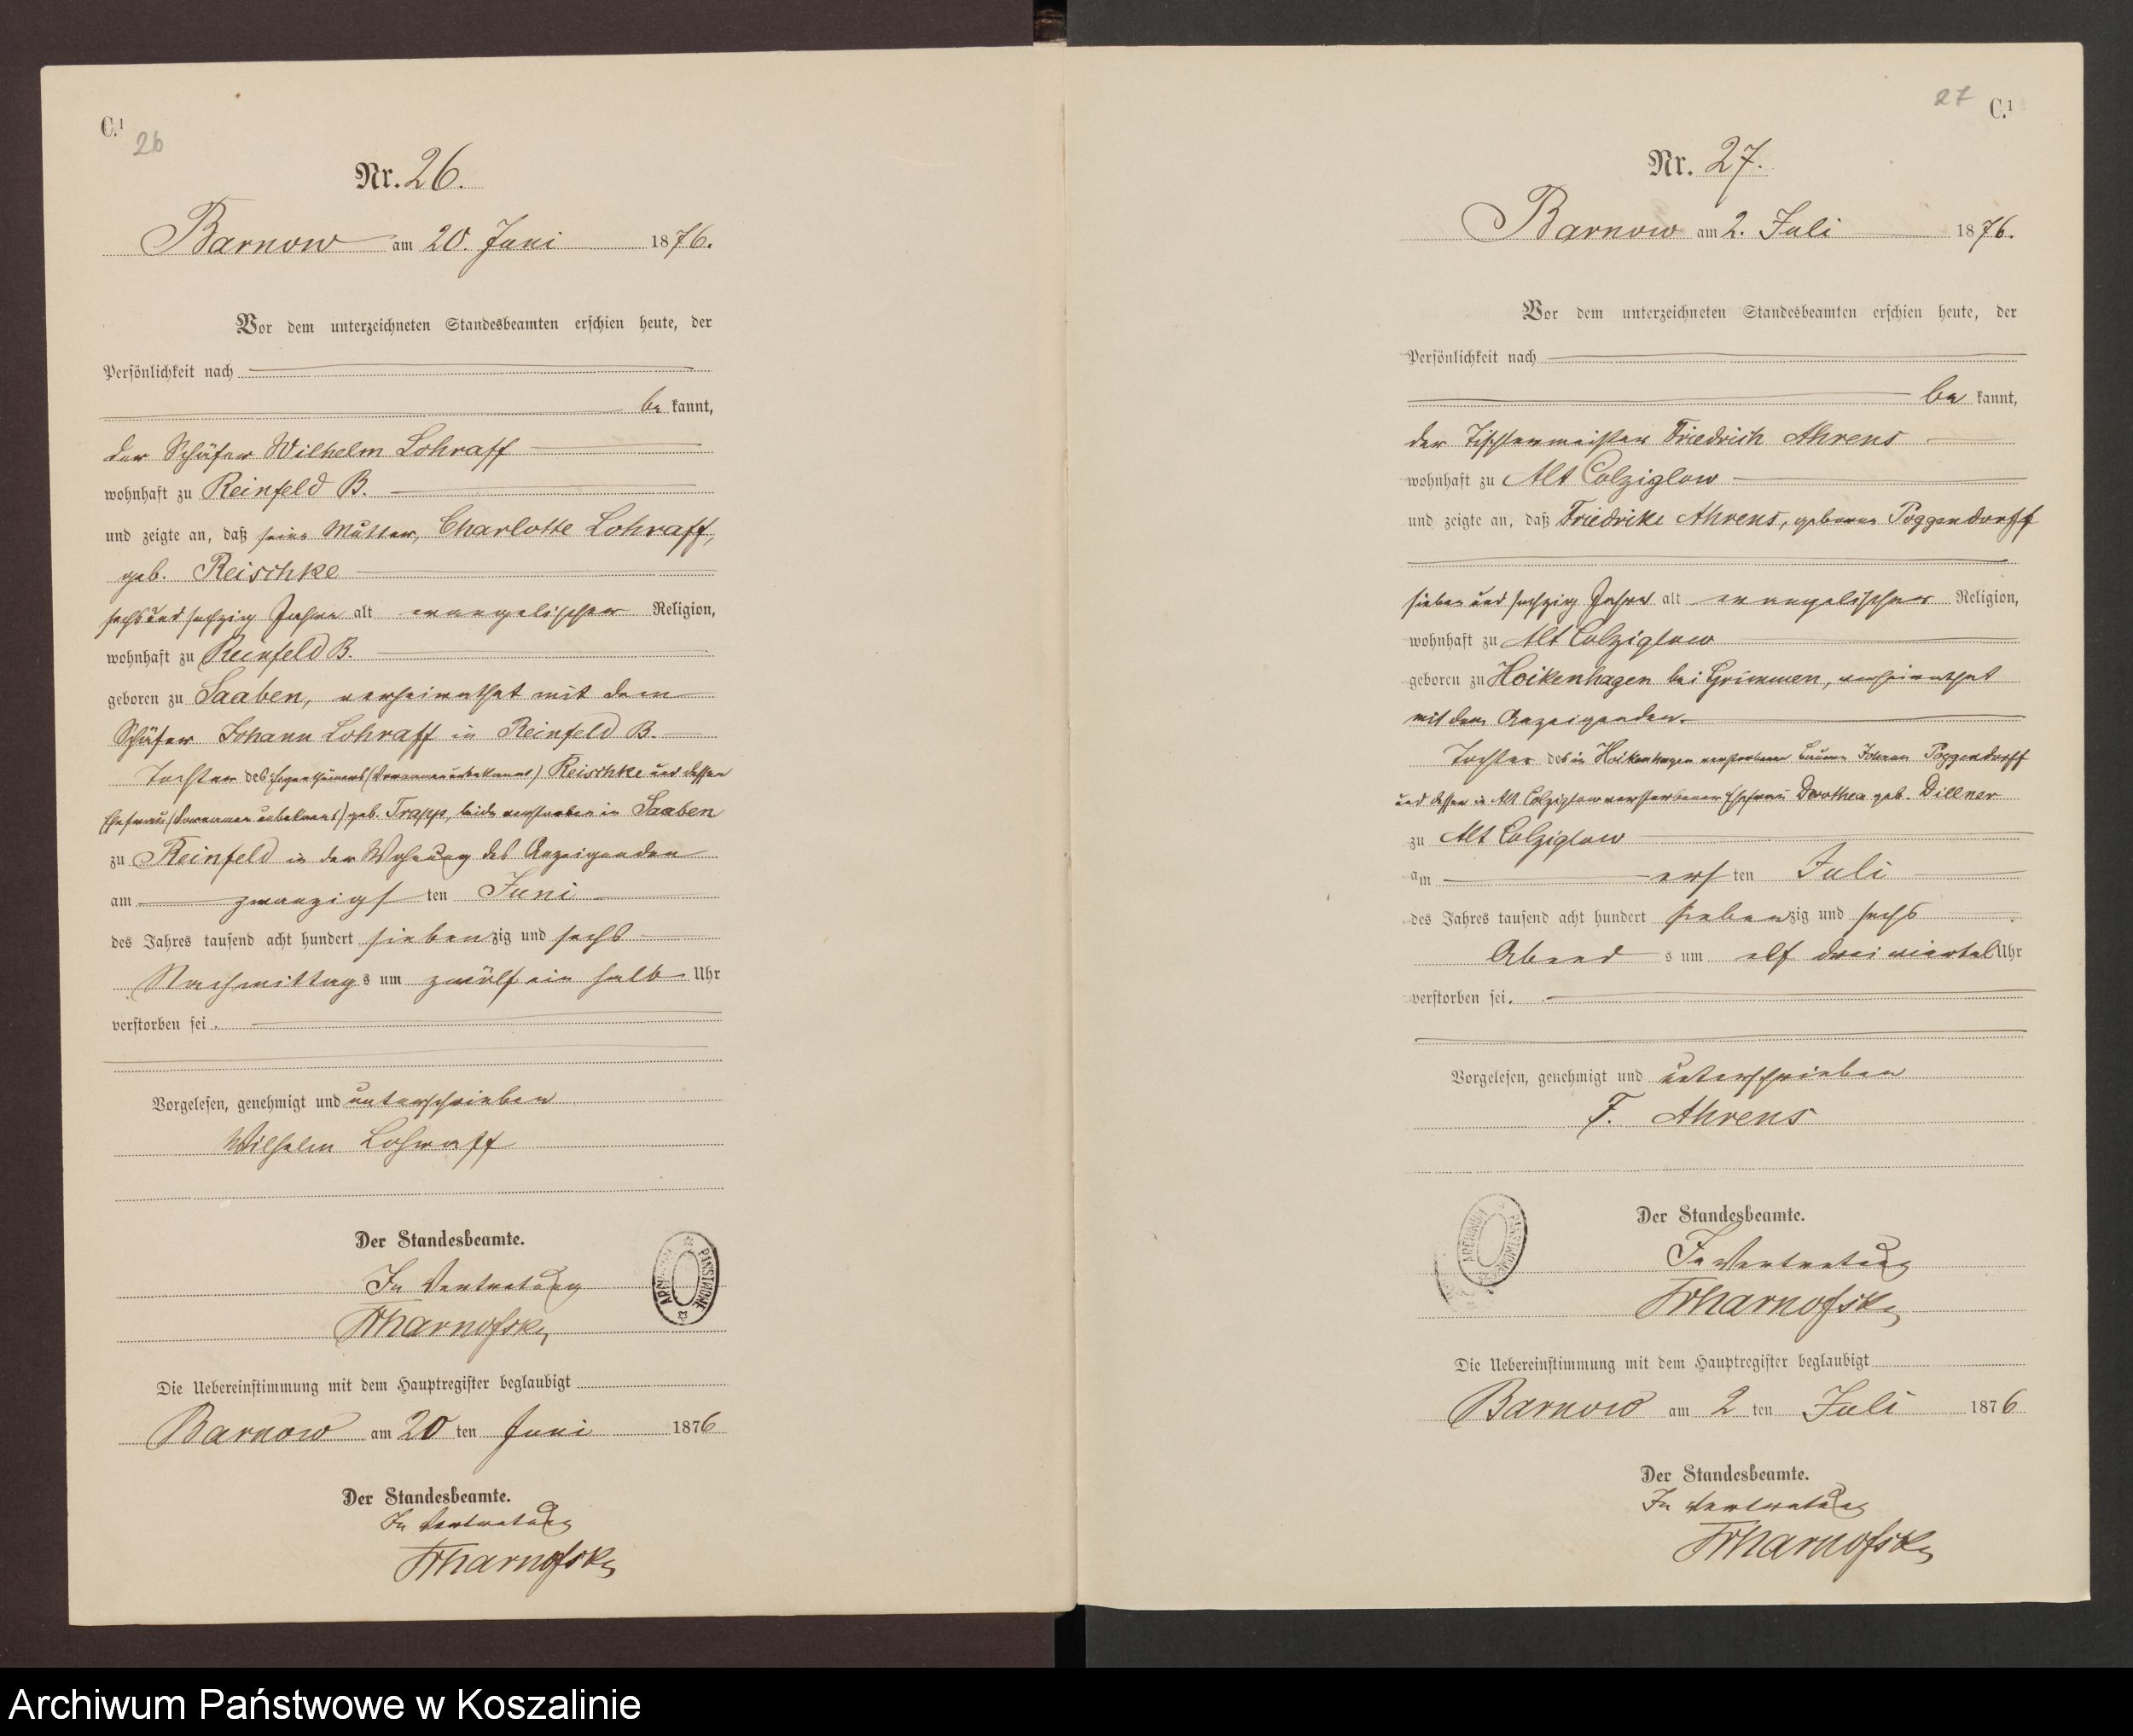 C.1
26
Nr. 26.
Barnow am 20. Juni 1876.
Vor dem unterzeichneten Standesbeamten erschien heute, der
Persönlichkeit nach
be kannt,
der Schäfer Wilhelm Lohraff
wohnhaft zu Reinfeld B.
und zeigte an, daß seine Mutter, Charlotte Lohraff,
geb. Reischke
sechs und sechzig Jahre alt evangelischer Religion,
wohnhaft zu Reinfeld B.
geboren zu Saaben, verheirathet mit dem
Schäfer Johann Lohraff in Reinfeld B.
Tochter des Eigenthümers (Vornamen unbekannt) Reischke und dessen
Ehefrau (Vornamen unbekannt) geb. Trapp, beide verstorben in Saaben
zu Reinfeld in der Wohnung des Anzeigenden
am zwanzigs ten Juni
des Jahres tausend acht hundert sieben zig und sechs
Nachmittag s um zwölf ein halb Uhr
verstorben sei.
Vorgelesen, genehmigt und unterschrieben
Wilhelm Lohraff
Der Standesbeamte.
In Vertretung
ARCHIWUM PAŃSTWOWE
Die Uebereinstimmung mit dem Hauptregister beglaubigt
Barnow am 20 ten Juni 1876
Der Standesbeamte.
In Vertretung
27 C.1
Nr. 27.
Barnow am 2. Juli 1876.
Vor dem unterzeichneten Standesbeamten erschien heute, der
Persönlichkeit nach
be kannt,
der Tischlermeister Friedrich Ahrens
wohnhaft zu Alt Colziglow
und zeigte an, daß Friedrike Ahrens, geborene Poggendorff
sieben und sechzig Jahre alt evangelischer Religion,
wohnhaft zu Alt Colziglow
geboren zu Hoikenhagen bei Grimmen, verheirathet
mit dem Anzeigenden.
Tochter des in Hoikenhagen verstorbenen Johann Poggendorff
und dessen in Alt Colziglow verstorbenen Ehefrau Dorothea geb. Dillner
zu Alt Colziglow
am ers ten Juli
des Jahres tausend acht hundert sieben zig und sechs
Abend s um elf drei viertel Uhr
verstorben sei.
Vorgelesen, genehmigt und unterschrieben
F. Ahrens
Der Standesbeamte.
In Vertretung
ARCHIWUM PAŃSTWOWE
Die Uebereinstimmung mit dem Hauptregister beglaubigt
Barnow am 2 ten Juli 1876
Der Standesbeamte.
In Vertretung
Archiwum Państwowe w Koszalinie